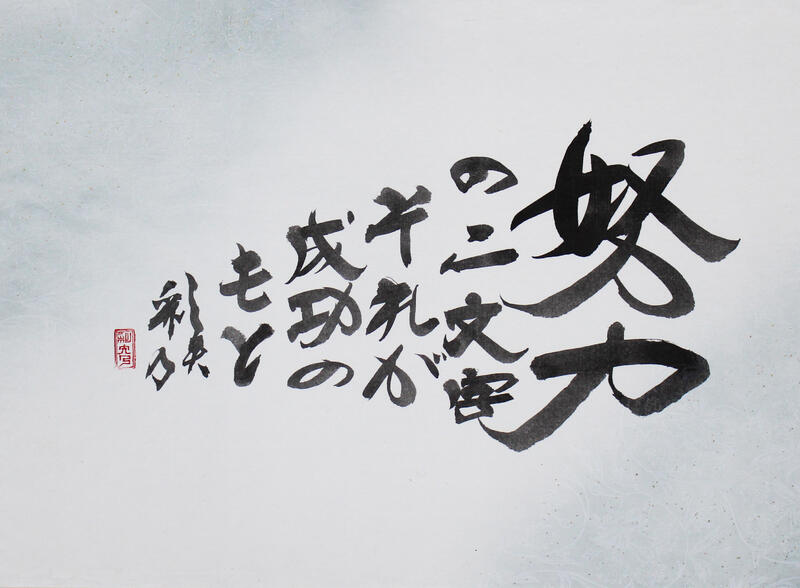 努力
の二文字
それが
成功の
もと